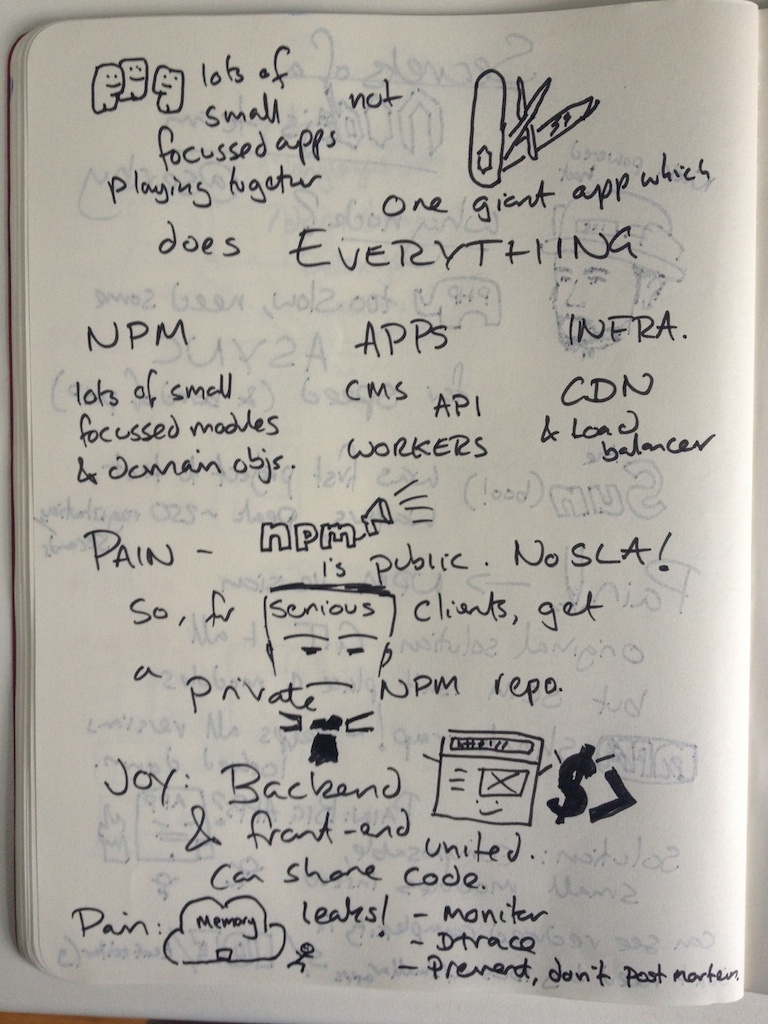 lots of
small not
focussed apps
playing together
one giant app which
does EVERYTHING
NPM APPS INFRA.
lots of small CMS API CDN
focussed modles & Load
& domain objs. WORKERS balancer
PAIN - npm
is public. No SLA!
So, for serious clients, get
a private NPM repo.
JOY: Backend
& front-end
united.
Can share code.
Pain: Memory leaks! - monitor
- Dtrace
- Prevent, don't post mortem.
$>